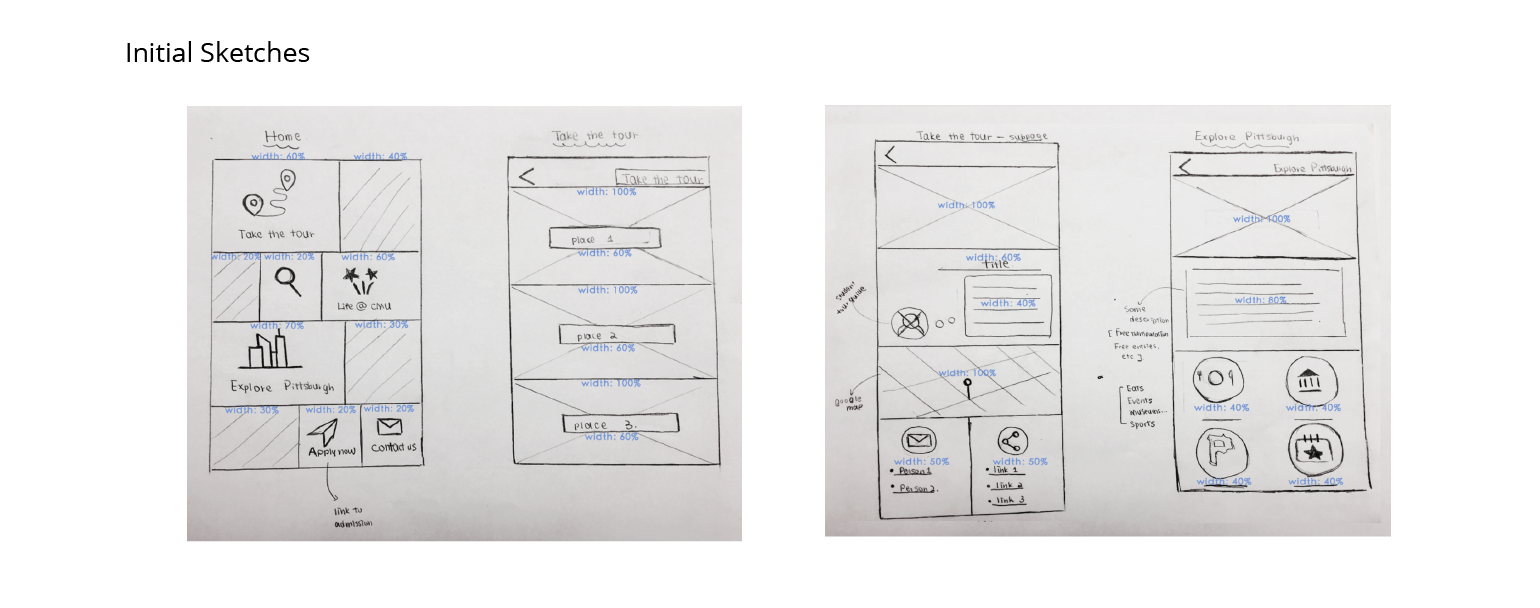 Initial Sketches
Home
width: 60%
width: 40%
Take the tour
width: 20%
width: 20%
width: 60%
Life @ CMU
width: 70%
width: 30%
Explore Pittsburgh
width: 30%
width: 20%
width: 20%
Apply now
Contact us
link to
admission
Take the tour
Take the tour
width: 100%
place 1
width: 60%
width: 100%
place 2
width: 60%
width: 100%
place 3.
width: 60%
Take the tour - subpage
width: 100%
width: 60%
title
width: 40%
student
tour guide
width: 100%
Google
map
width: 50%
Person 1
Person 2.
width: 50%
link 1
link 2
link 3
Explore Pittsburgh
Explore Pittsburgh
width: 100%
width: 80%
Some
description
Free events,
etc ]
Eats
Events
Museums...
Sports
width: 40%
width: 40%
width: 40%
width: 40%